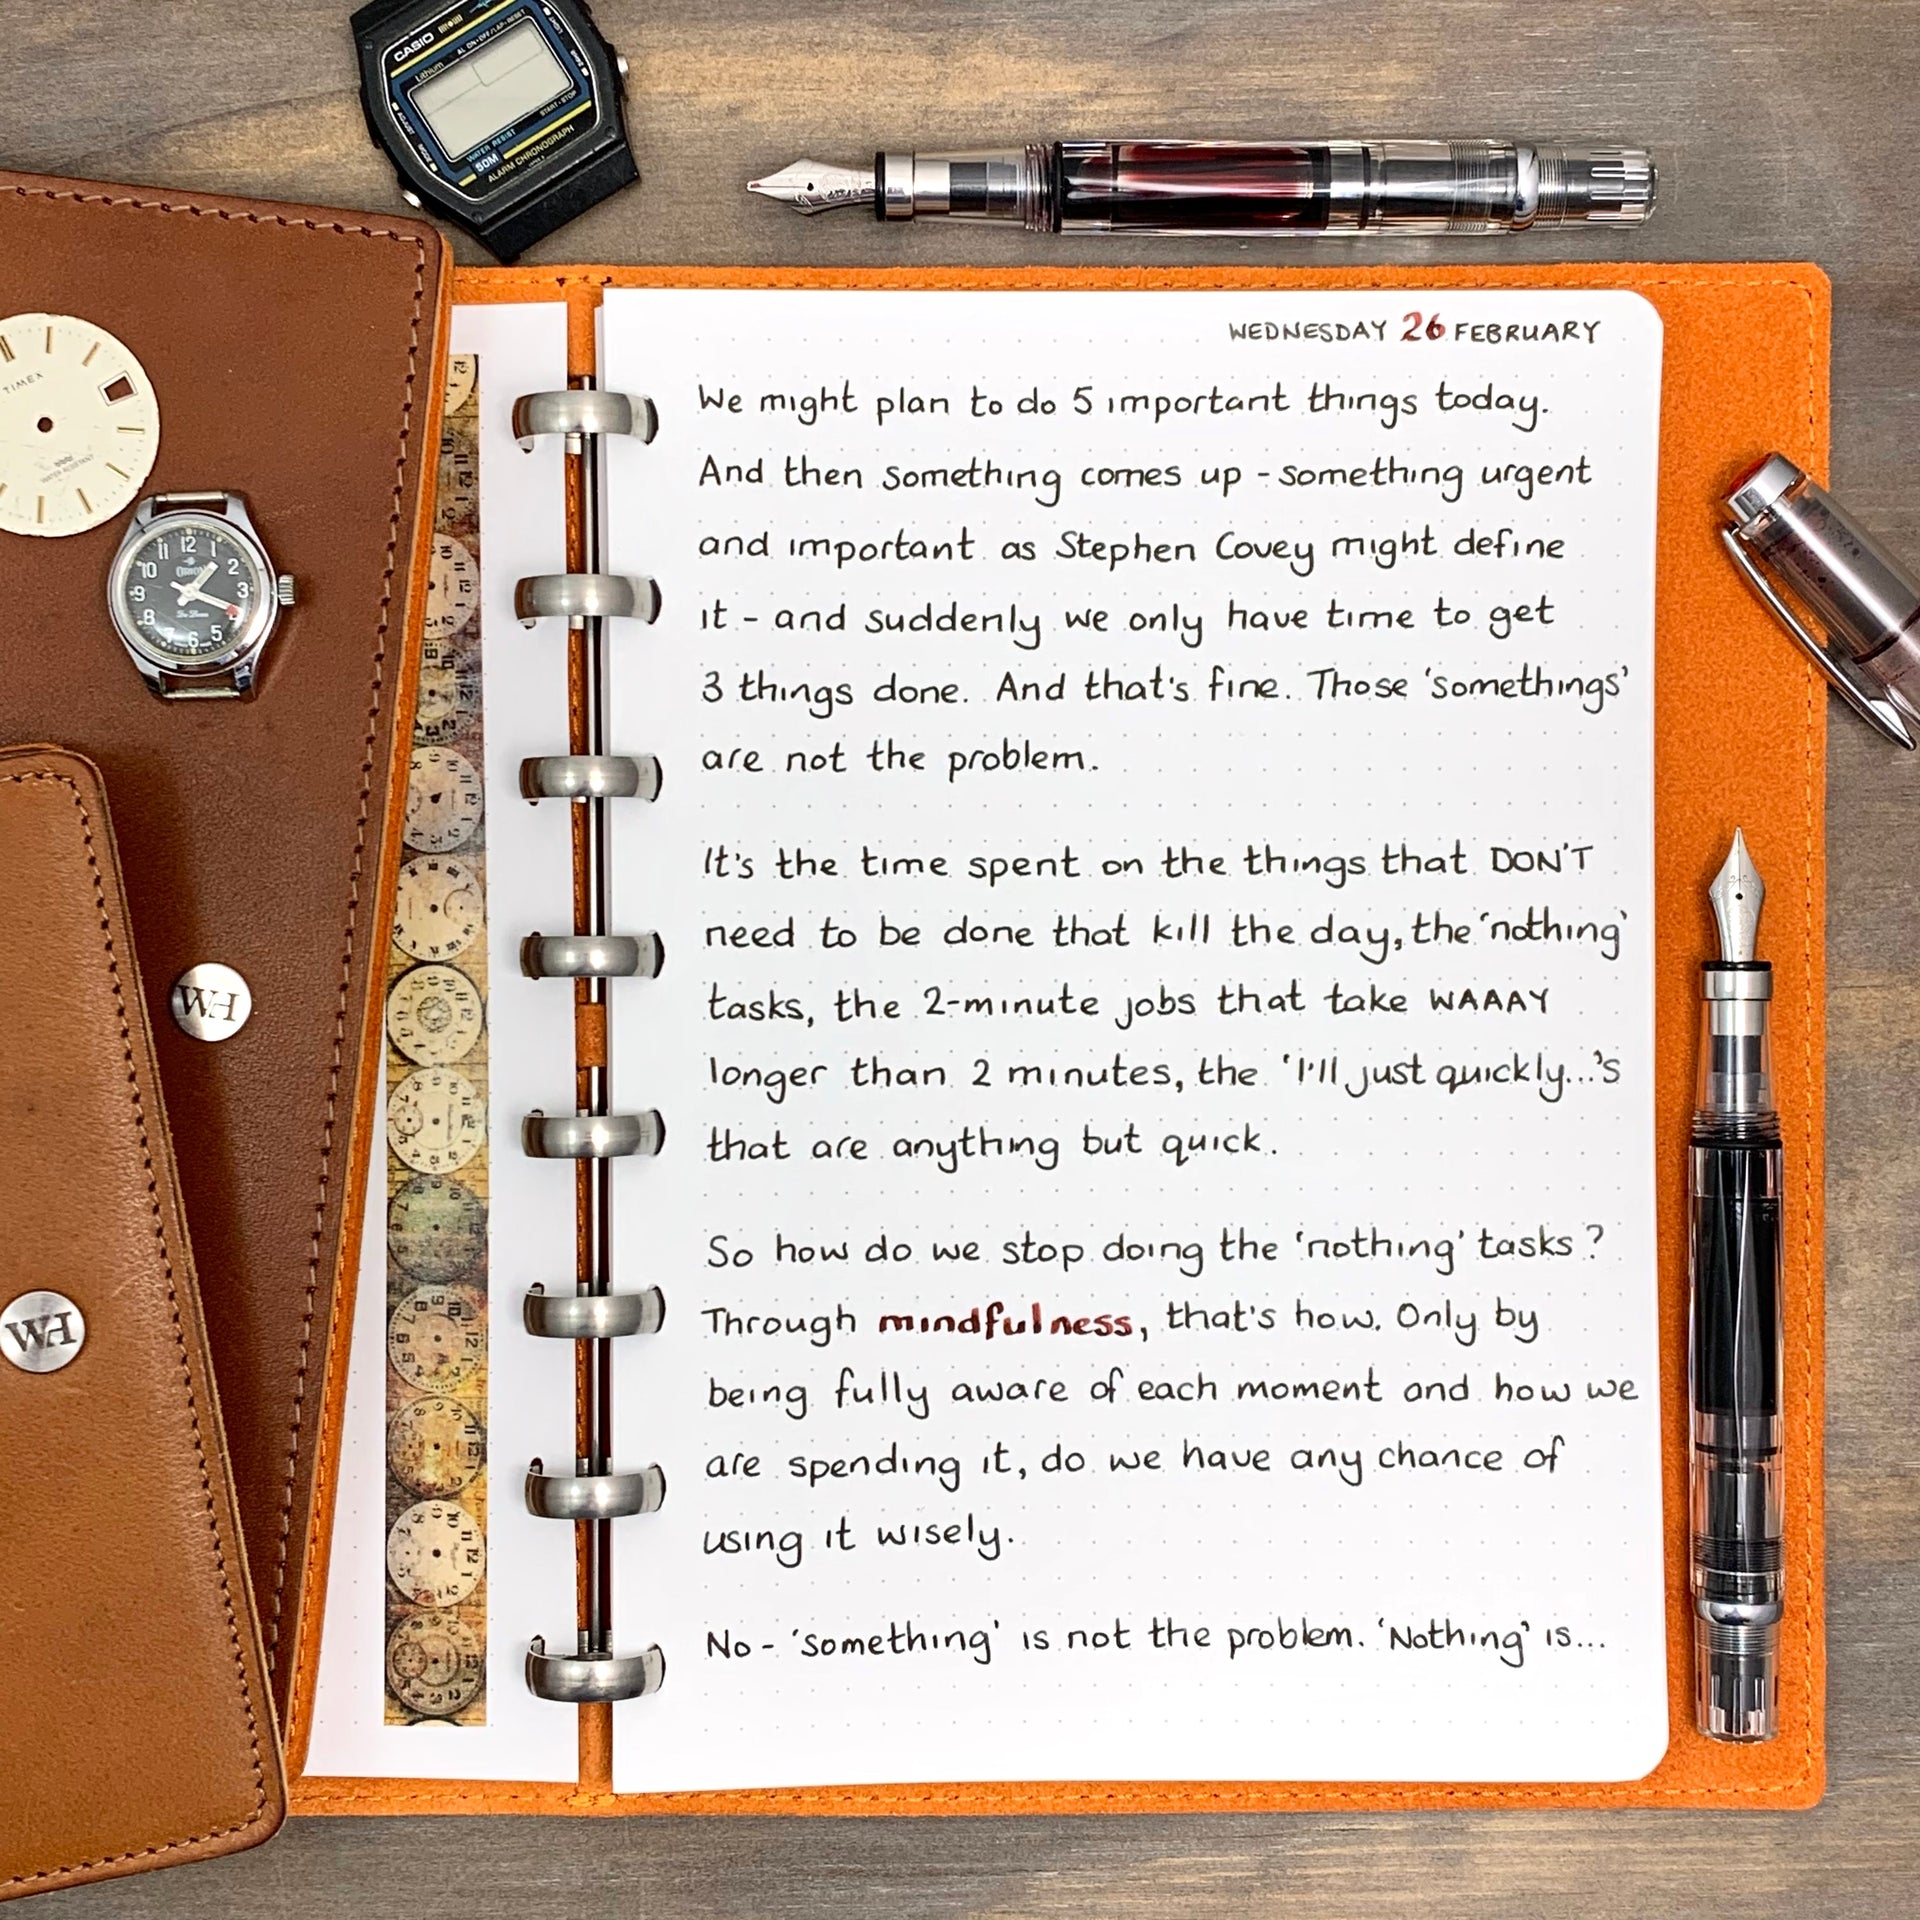 CASIO
Lithium
AL ON•OFF/LAP•RESET
LIGHT
ADJUST
MODE
START•STOP
WATER RESIST
50M
ALARM CHRONOGRAPH
TIMEX
WATER RESISTANT
12
1
2
3
5
6
7
8
9
10
11
ORION
WH
WH
WEDNESDAY 26 FEBRUARY
We might plan to do 5 important things today.
And then something comes up - something urgent
and important as Stephen Covey might define
it - and suddenly we only have time to get
3 things done. And that's fine. Those 'somethings'
are not the problem.
It's the time spent on the things that DON'T
need to be done that kill the day, the 'nothing'
tasks, the 2-minute jobs that take WAAAY
longer than 2 minutes, the 'I'll just quickly...'s
that are anything but quick.
So how do we stop doing the 'nothing' tasks?
Through mindfulness, that's how. Only by
being fully aware of each moment and how we
are spending it, do we have any chance of
using it wisely.
No - 'something' is not the problem. 'Nothing' is...